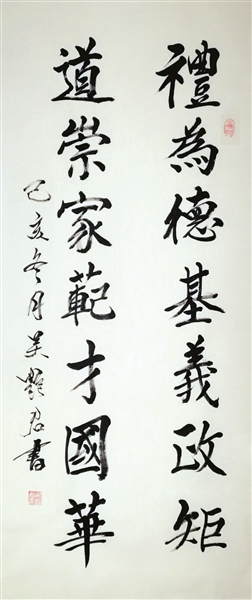 禮為德基義政矩
道崇家範才國華
己亥冬月 君書